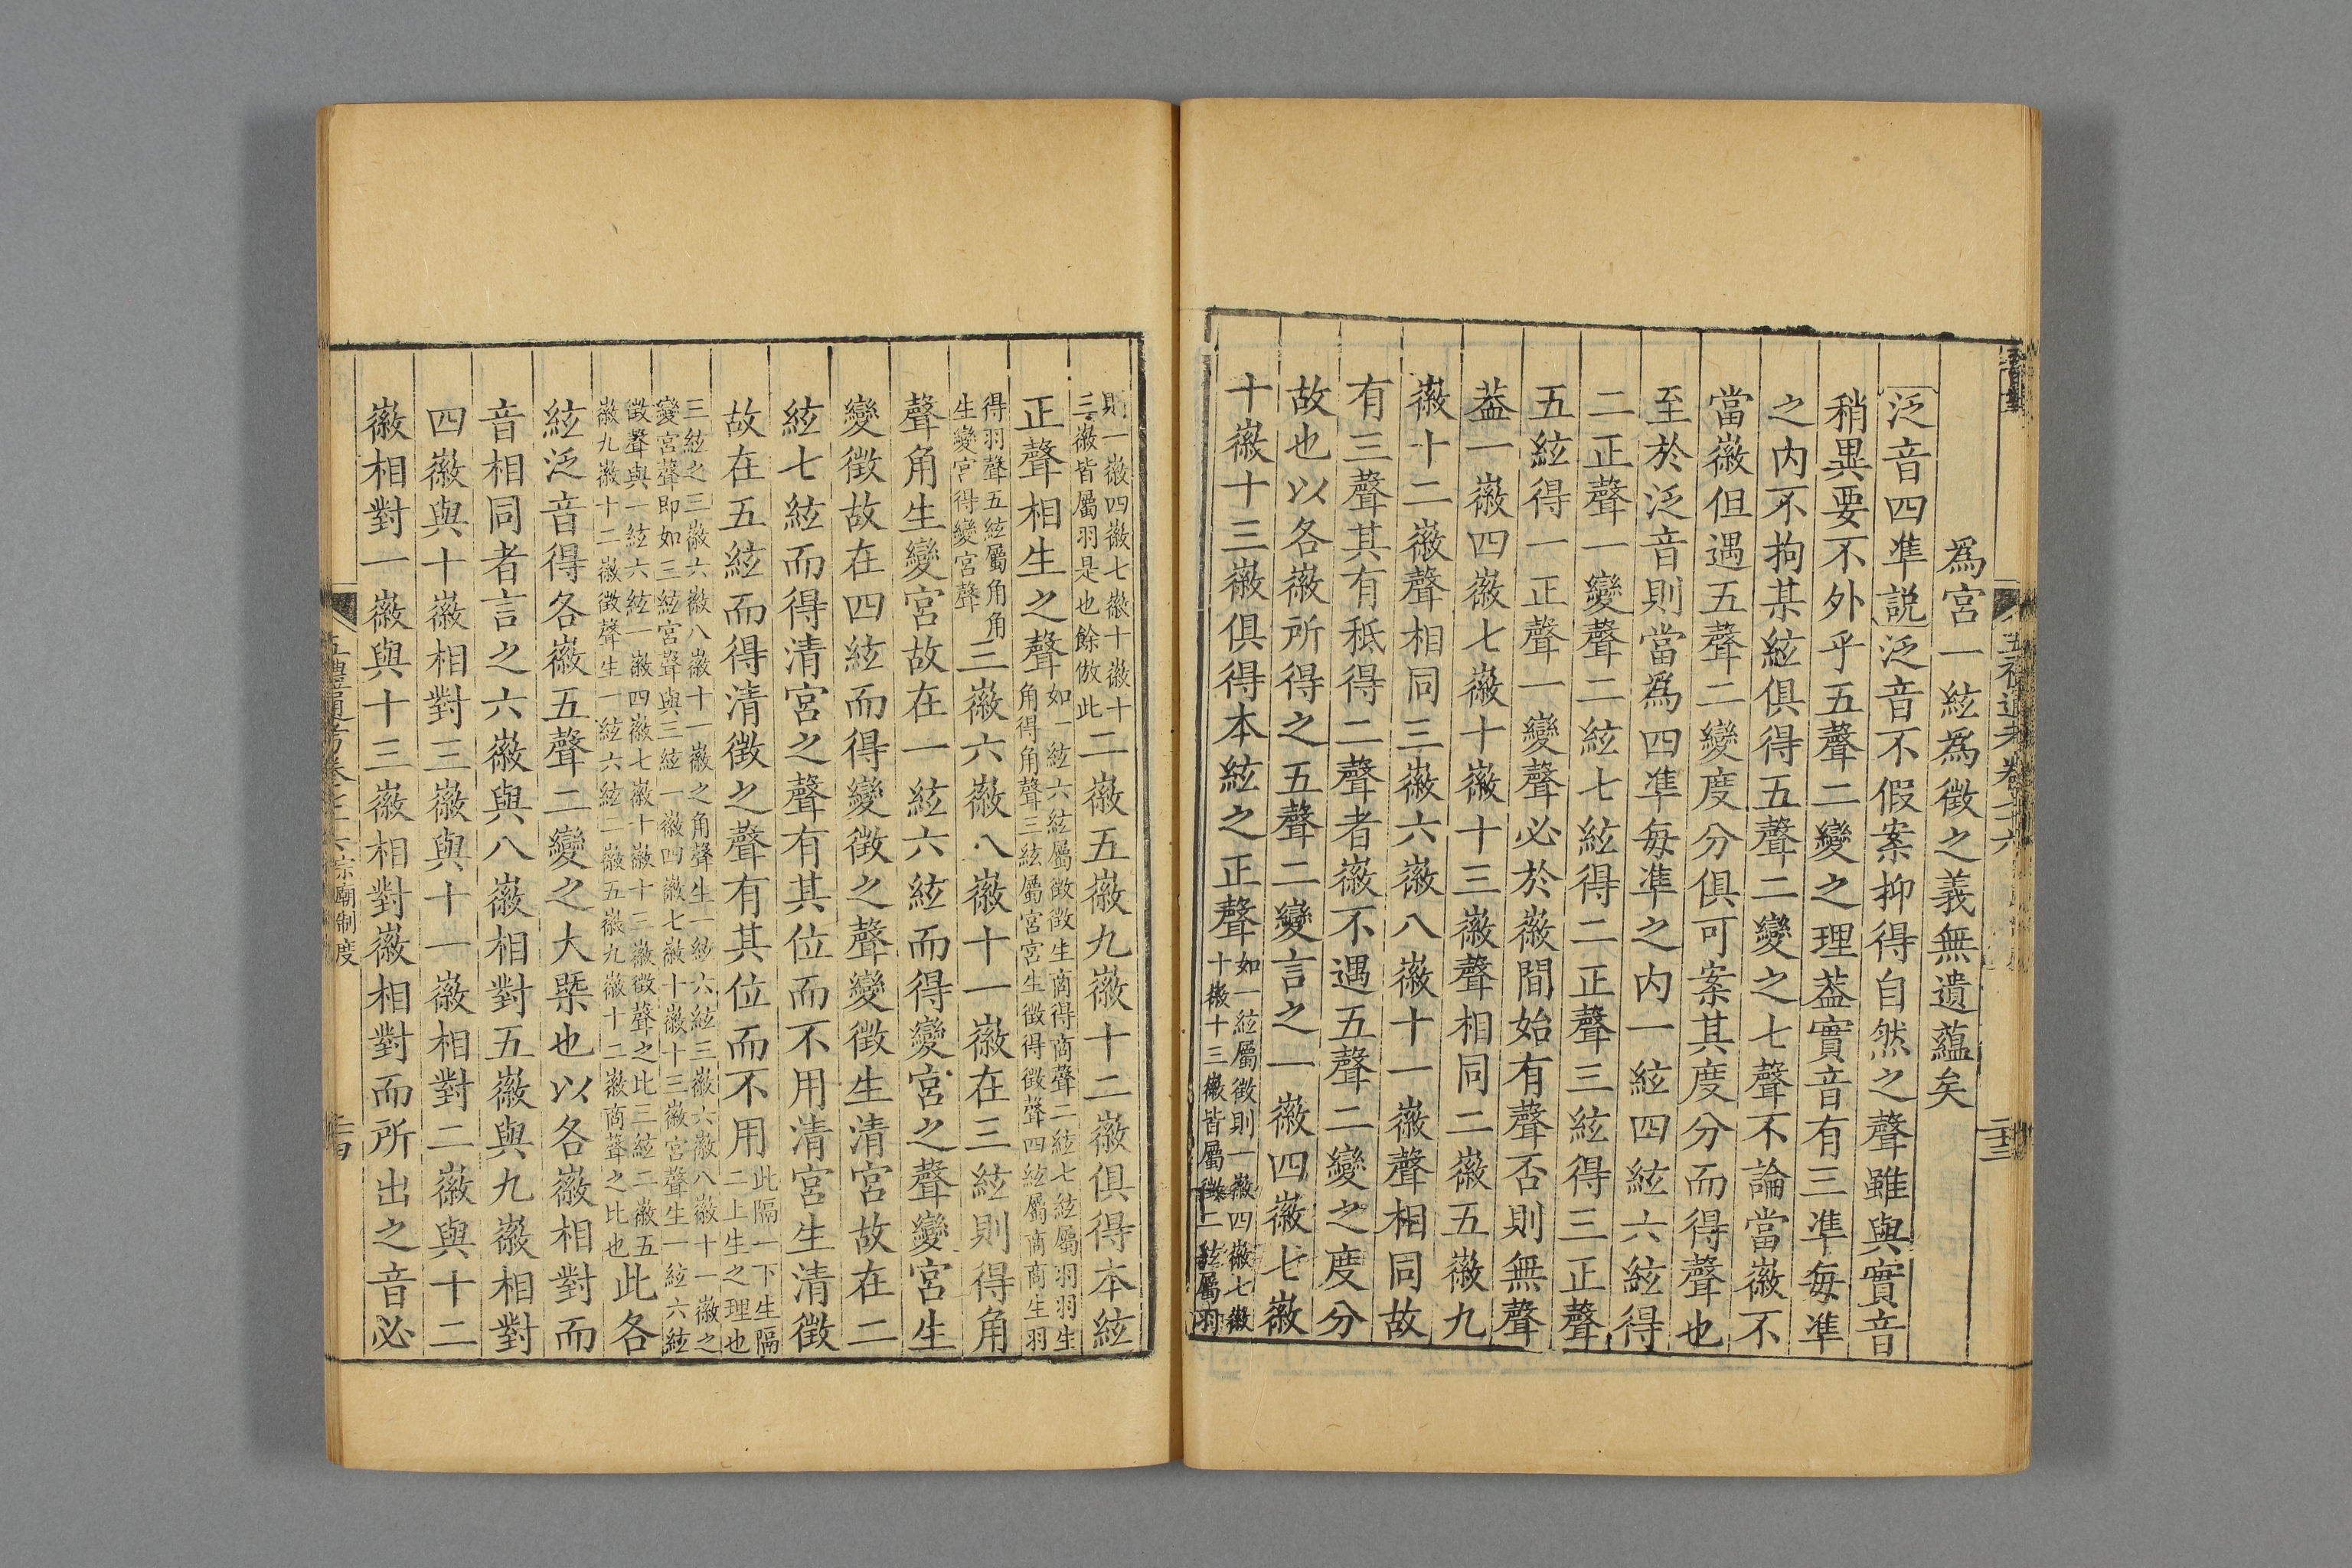 爲宮一絃爲徵之義無遺蘊矣
泛音四準説泛音不假案抑得自然之聲雖與實音
稍異要不外乎五聲二變之理葢實音有三準每準
之内不拘某絃俱得五聲二變之七聲不論當徽不
當徽但遇五聲二變度分俱可案其度分而得聲也
至於泛音則當爲四準每準之内一絃四絃六絃得
二正聲一變聲二絃七絃得二正聲三絃得三正聲
五絃得一正聲一變聲必於徽間始有聲否則無聲
葢一徽四徽七徽十徽十三徽聲相同二徽五徽九
徽十二徽聲相同三徽六徽八徽十一徽聲相同故
有三聲其有秪得二聲者徽不遇五聲二變之度分
故也以各徽所得之五聲二變言之一徽四徽七徽
十徽十三徽俱得本絃之正聲如一絃屬徵則一徽四徽七徽
十徽十三徽皆屬徵二絃屬羽
則一徽四徽七徽十徽十
三徽皆屬羽是也餘倣此二徽五徽九徽十二徽俱得本絃
正聲相生之聲如一絃六絃屬徵徵生商得商聲二絃七絃屬羽羽生
角得角聲三絃屬宮宮生徵得徵聲四絃屬商商生羽
得羽聲五絃屬角角
生變宮得變宮聲三徽六徽八徽十一徽在三絃則得角
聲角生變宮故在一絃六絃而得變宮之聲變宮生
變徵故在四絃而得變徵之聲變徵生清宮故在二
絃七絃而得清宮之聲有其位而不用清宮生清徵
故在五絃而得清徵之聲有其位而不用此隔一下生隔
二上生之理也
三絃之三徽六徽八徽十一徽之角聲生一絃六絃三徽六徽八徽十一徽之
變宮聲即如三絃宮聲與三絃一徽四徽七徽十徽十三徽宮聲生一絃六絃
徵聲與一絃六絃一徽四徽七徽十徽十三徽徵聲之比三絃二徽五
徽九徽十二徽徵聲生一絃六絃二徽五徽九徽十二徽商聲之比也此各
絃泛音得各徽五聲二變之大槩也以各徽相對而
音相同者言之六徽與八徽相對五徽與九徽相對
四徽與十徽相對三徽與十一徽相對二徽與十二
徽相對一徽與十三徽相對徽相對而所出之音必
五禮通考卷
宗廟制度